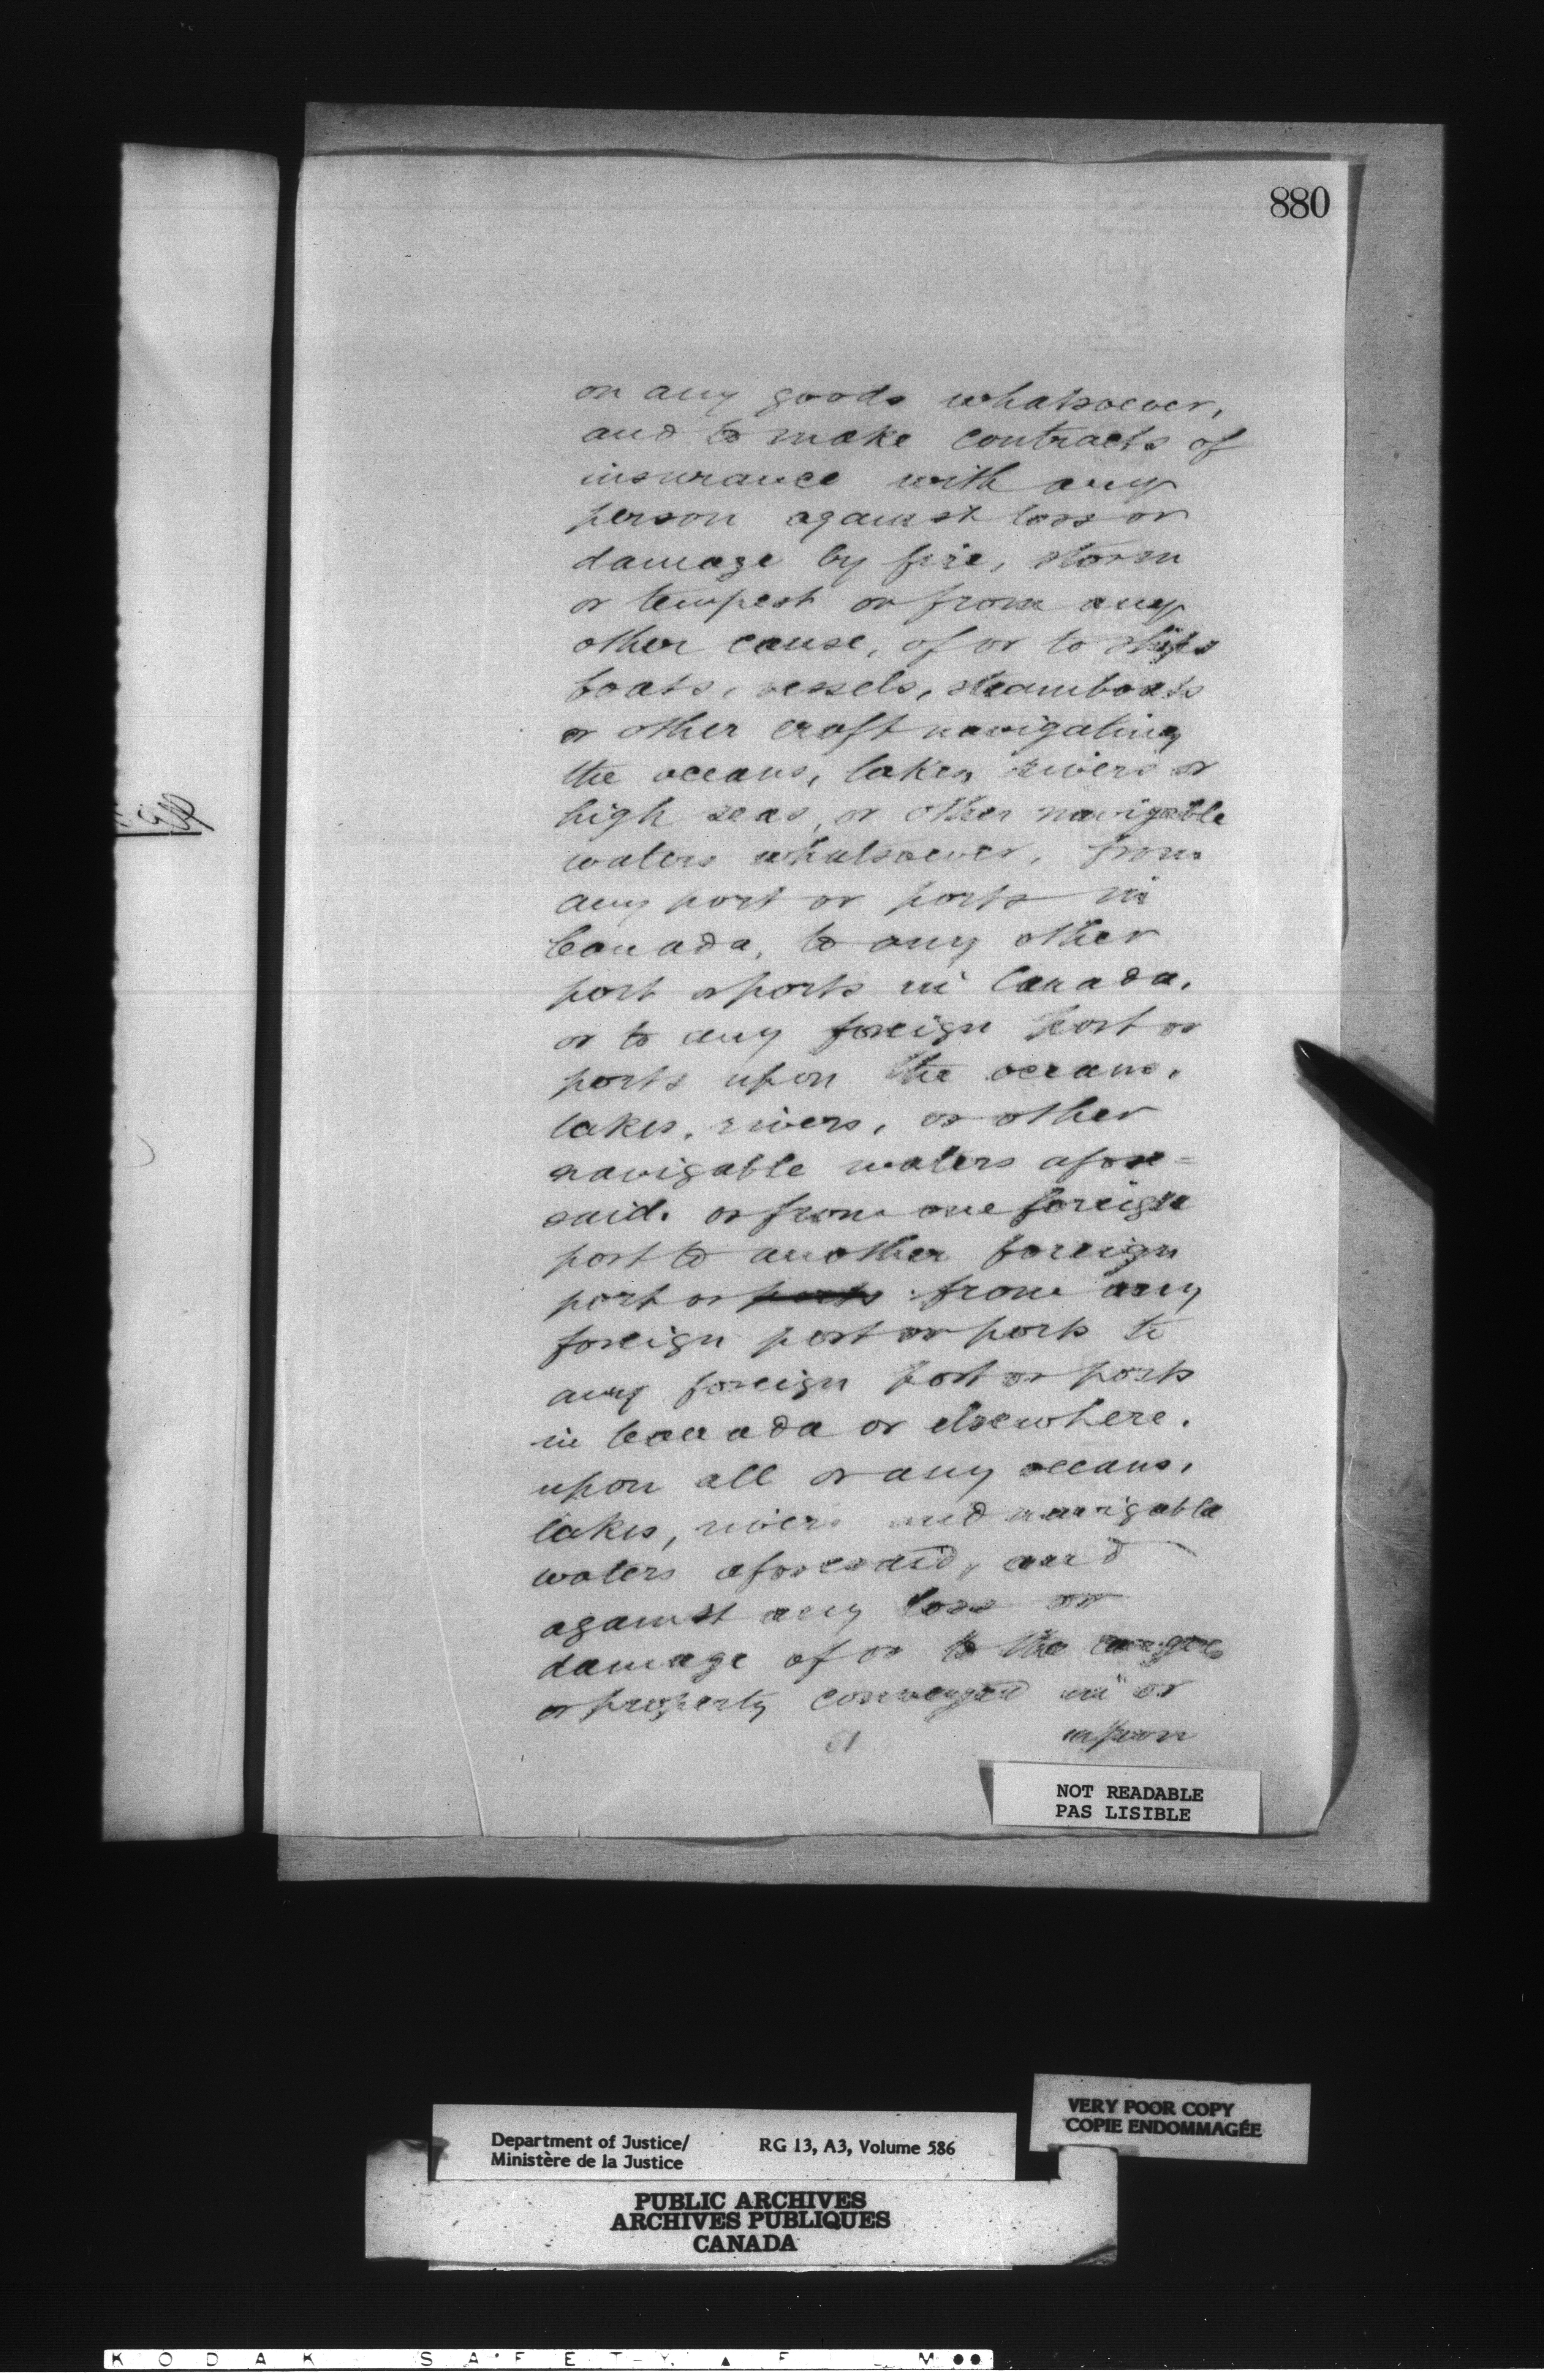 880
on any goods whatsoever,
and to make contracts of
insurance with any
person against loss or
damage by fire, storm
or tempest or from any
other cause, of or to ships
boats, vessels, steamboats
or other craft navigating
the oceans, lakes, rivers or
high seas, or other navigable
waters whatsoever, from
any port or ports in
Canada, to any other
port or ports in Canada,
or to any foreign port or
ports upon the oceans,
lakes, rivers, or other
navigable waters afore=
said. or from one foreign
port to another foreign
port or ports from any
foreign port or ports to
any foreign port or ports
in Canada or elsewhere.
upon all or any oceans,
lakes, rivers and navigable
waters aforesaid, and
against any loss or
damage of or to the cargoes
or property conveyed in or
upon
NOT READABLE
PAS LISIBLE
VERY POOR COPY
COPIE ENDOMMAGÉE
Department of Justice/
Ministère de la Justice
RG 13, A3, Volume 586
PUBLIC ARCHIVES
ARCHIVES PUBLIQUES
CANADA
KODAK SAFETY